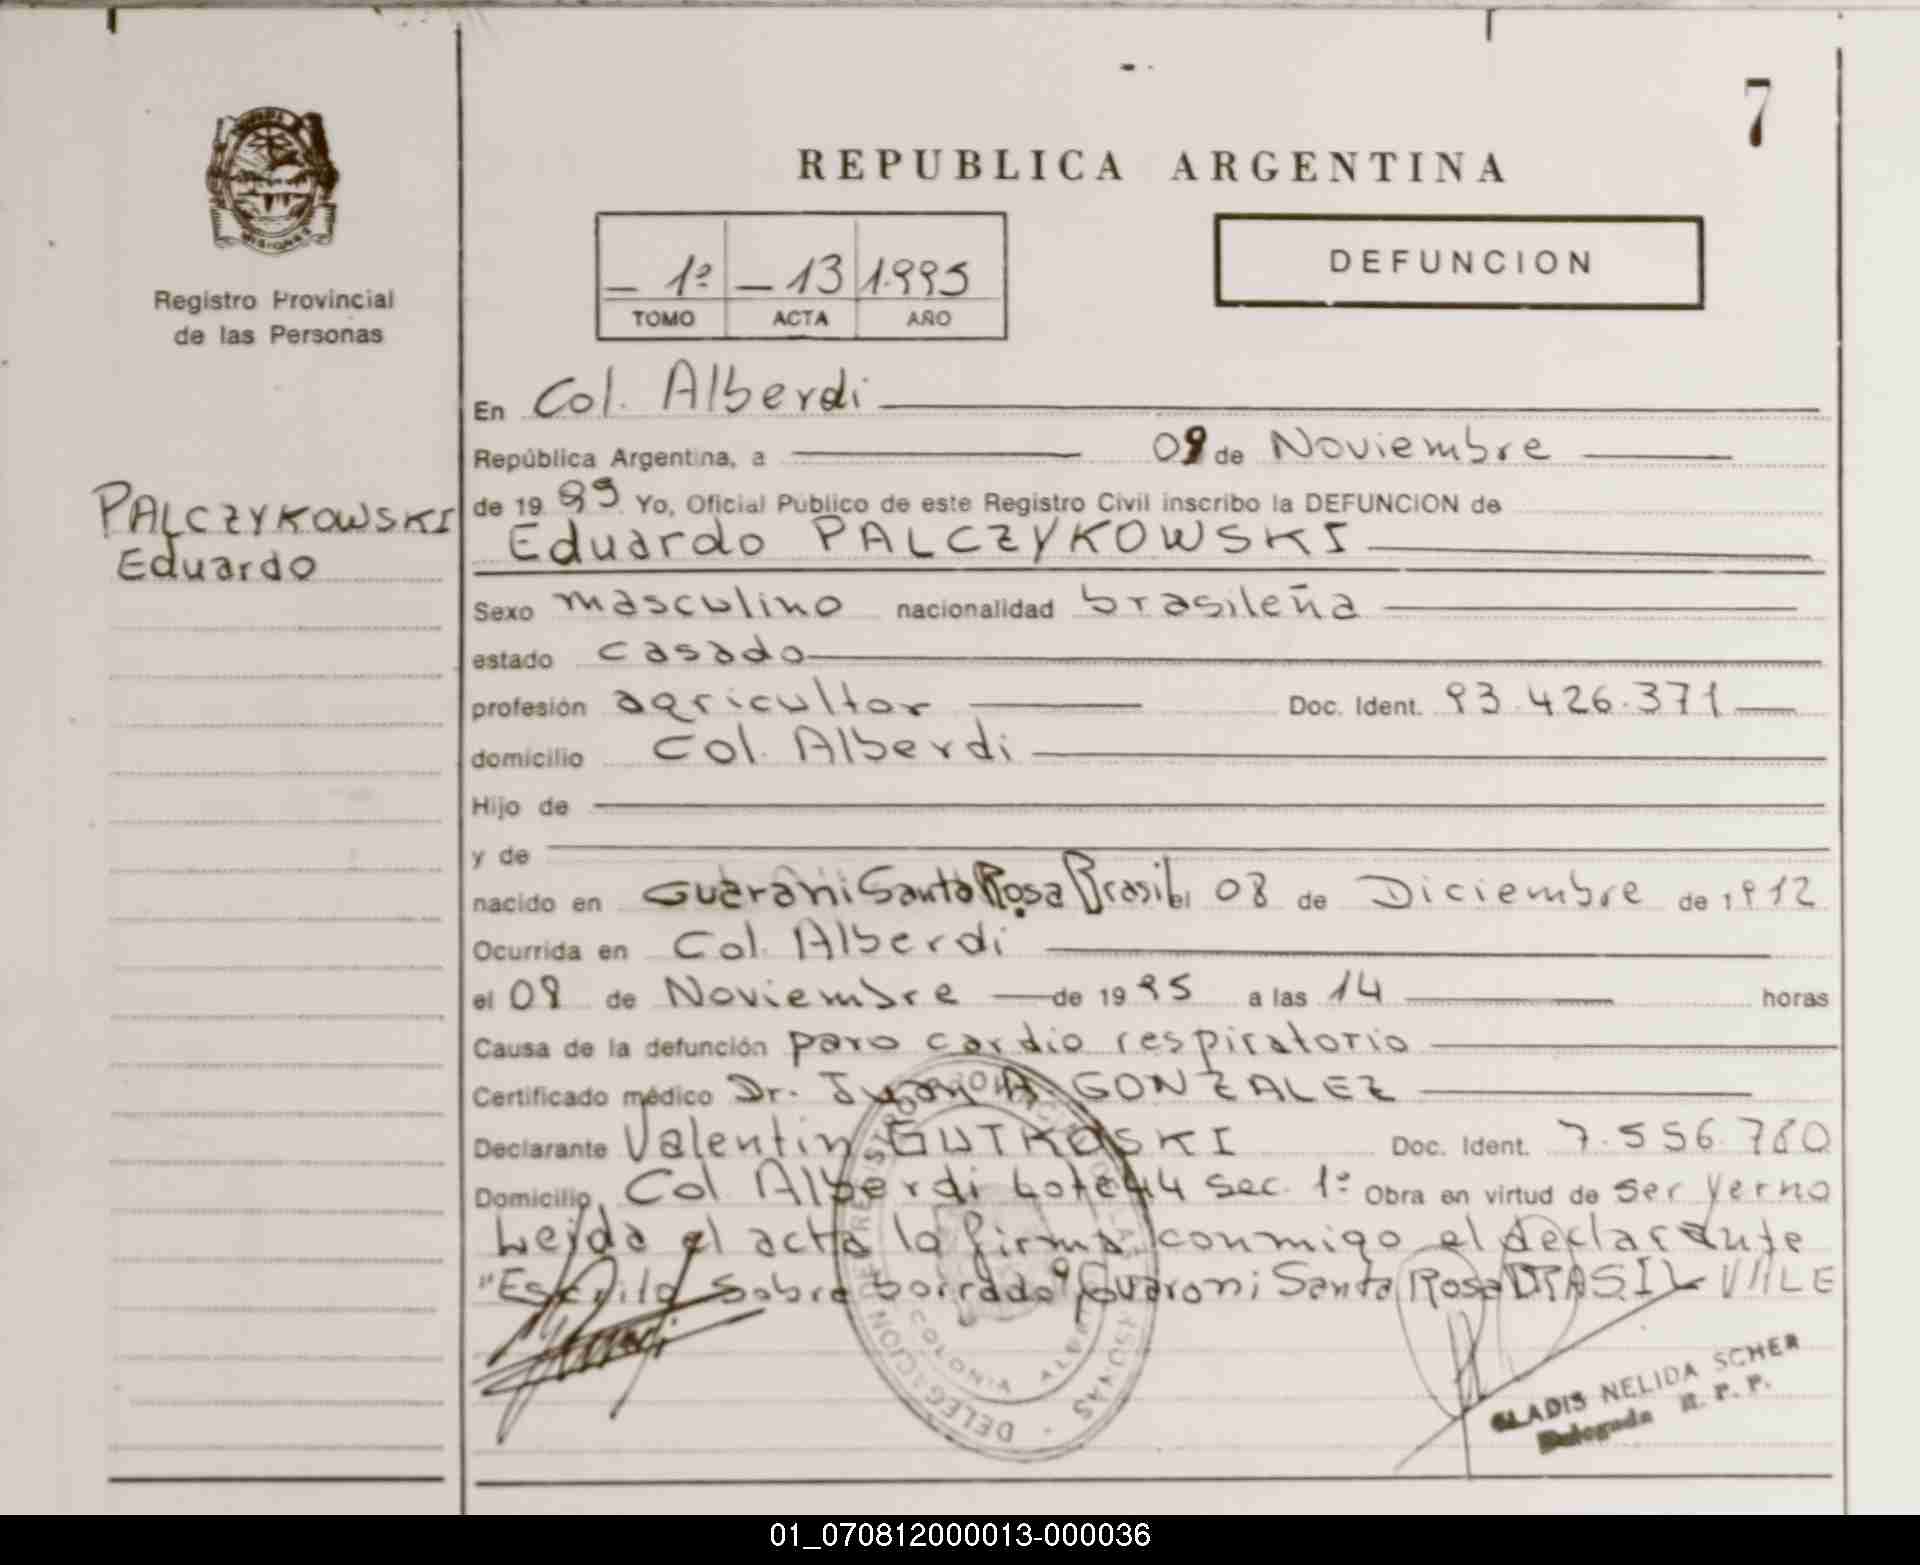 7
REPUBLICA ARGENTINA
MISIONES
Registro Provincial
de las Personas
1º 13 1.995
TOMO ACTA AÑO
DEFUNCION
En Col. Alberdi
República Argentina, a 09 de Noviembre
PALCZYKOWSKI
Eduardo
de 19 95 Yo, Oficial Público de este Registro Civil inscribo la DEFUNCION de
Eduardo PALCZYKOWSKI
Sexo masculino nacionalidad brasileña
estado casado
profesión agricultor Doc. Ident. 93.426.371
domicilio Col. Alberdi
Hijo de
y de
nacido en Guarani Santa Rosa Brasil el 08 de Diciembre de 1912
Ocurrida en Col. Alberdi
el 09 de Noviembre de 19 95 a las 14 horas
Causa de la defunción paro cardio respiratorio
Certificado médico Dr. Juan A. GONZALEZ
Declarante Valentin GUTKOSKI Doc. Ident. 7.556.780
Domicilio Col Alberdi Lote 44 sec. 1º Obra en virtud de ser yerno
Leida el acta la firma conmigo el declarante
"Escrito sobre borrado" Guarani Santa Rosa BRASIL VALE
COLONIA
GLADIS NELIDA SCHER
Delegada R. P. P.
01_070812000013-000036